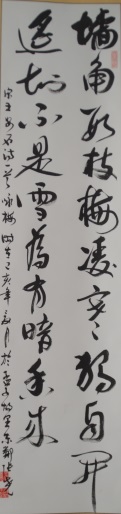 墙角数枝梅凌寒独自开
遥知不是雪为有暗香来
宋王安石诗一首咏梅 时在己亥年